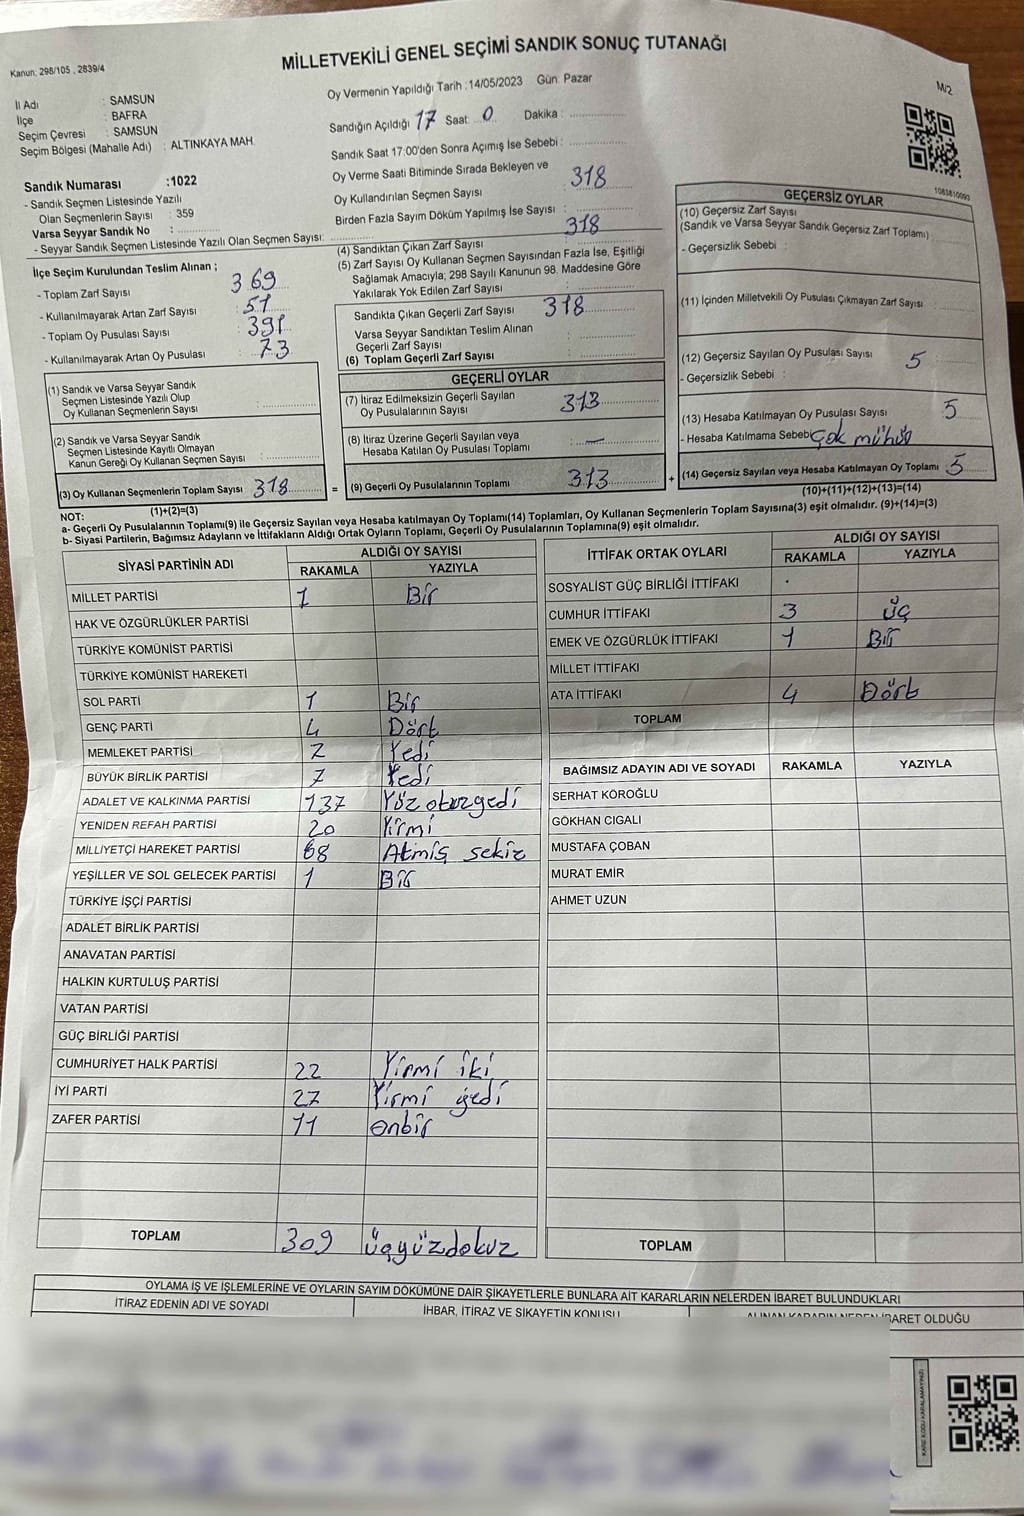 MİLLETVEKİLİ GENEL SEÇİMİ SANDIK SONUÇ TUTANAĞI
Kanun: 298/105 , 2839/4
M/2
İl Adı : SAMSUN
İlçe : BAFRA
Seçim Çevresi : SAMSUN
Seçim Bölgesi (Mahalle Adı) : ALTINKAYA MAH.
Sandık Numarası :1022
- Sandık Seçmen Listesinde Yazılı
Olan Seçmenlerin Sayısı : 359
Varsa Seyyar Sandık No :
- Seyyar Sandık Seçmen Listesinde Yazılı Olan Seçmen Sayısı:
Oy Vermenin Yapıldığı Tarih :14/05/2023 Gün: Pazar
Sandığın Açıldığı 17 Saat 0 Dakika :
Sandık Saat 17:00'den Sonra Açımış İse Sebebi :
Oy Verme Saati Bitiminde Sırada Bekleyen ve
Oy Kullandırılan Seçmen Sayısı : 318
Birden Fazla Sayım Döküm Yapılmış İse Sayısı :
1083810093
İlçe Seçim Kurulundan Teslim Alınan ;
- Toplam Zarf Sayısı : 369
- Kullanılmayarak Artan Zarf Sayısı : 51
- Toplam Oy Pusulası Sayısı : 391
- Kullanılmayarak Artan Oy Pusulası : 73
(1) Sandık ve Varsa Seyyar Sandık
Seçmen Listesinde Yazılı Olup
Oy Kullanan Seçmenlerin Sayısı :
(2) Sandık ve Varsa Seyyar Sandık
Seçmen Listesinde Kayıtlı Olmayan
Kanun Gereği Oy Kullanan Seçmen Sayısı :
(3) Oy Kullanan Seçmenlerin Toplam Sayısı 318
(1)+(2)=(3)
(4) Sandıktan Çıkan Zarf Sayısı : 318
(5) Zarf Sayısı Oy Kullanan Seçmen Sayısından Fazla İse, Eşitliği
Sağlamak Amacıyla; 298 Sayılı Kanunun 98. Maddesine Göre
Yakılarak Yok Edilen Zarf Sayısı :
Sandıkta Çıkan Geçerli Zarf Sayısı : 318
Varsa Seyyar Sandıktan Teslim Alınan
Geçerli Zarf Sayısı :
(6) Toplam Geçerli Zarf Sayısı :
GEÇERLİ OYLAR
(7) İtiraz Edilmeksizin Geçerli Sayılan
Oy Pusulalarının Sayısı : 313
(8) İtiraz Üzerine Geçerli Sayılan veya
Hesaba Katılan Oy Pusulası Toplamı : —
= (9) Geçerli Oy Pusulalarının Toplamı : 313 +
GEÇERSİZ OYLAR
(10) Geçersiz Zarf Sayısı
(Sandık ve Varsa Seyyar Sandık Geçersiz Zarf Toplamı) :
- Geçersizlik Sebebi :
(11) İçinden Milletvekili Oy Pusulası Çıkmayan Zarf Sayısı :
(12) Geçersiz Sayılan Oy Pusulası Sayısı : 5
- Geçersizlik Sebebi :
(13) Hesaba Katılmayan Oy Pusulası Sayısı : 5
- Hesaba Katılmama Sebebi Çok mühür
(14) Geçersiz Sayılan veya Hesaba Katılmayan Oy Toplamı : 5
(10)+(11)+(12)+(13)=(14)
NOT:
a- Geçerli Oy Pusulalarının Toplamı(9) ile Geçersiz Sayılan veya Hesaba katılmayan Oy Toplamı(14) Toplamları, Oy Kullanan Seçmenlerin Toplam Sayısına(3) eşit olmalıdır. (9)+(14)=(3)
b- Siyasi Partilerin, Bağımsız Adayların ve İttifakların Aldığı Ortak Oyların Toplamı, Geçerli Oy Pusulalarının Toplamına(9) eşit olmalıdır.
SİYASİ PARTİNİN ADI ALDIĞI OY SAYISI
RAKAMLA YAZIYLA
MİLLET PARTİSİ 1 Bir
HAK VE ÖZGÜRLÜKLER PARTİSİ
TÜRKİYE KOMÜNİST PARTİSİ
TÜRKİYE KOMÜNİST HAREKETİ
SOL PARTİ 1 Bir
GENÇ PARTİ 4 Dört
MEMLEKET PARTİSİ 7 Yedi
BÜYÜK BİRLİK PARTİSİ 7 Yedi
ADALET VE KALKINMA PARTİSİ 137 Yüz otuzyedi
YENİDEN REFAH PARTİSİ 20 Yirmi
MİLLİYETÇİ HAREKET PARTİSİ 68 Atmış sekiz
YEŞİLLER VE SOL GELECEK PARTİSİ 1 Bir
TÜRKİYE İŞÇİ PARTİSİ
ADALET BİRLİK PARTİSİ
ANAVATAN PARTİSİ
HALKIN KURTULUŞ PARTİSİ
VATAN PARTİSİ
GÜÇ BİRLİĞİ PARTİSİ
CUMHURİYET HALK PARTİSİ 22 Yirmi iki
İYİ PARTİ 27 Yirmi yedi
ZAFER PARTİSİ 11 Onbir
TOPLAM 309 Üçyüzdokuz
İTTİFAK ORTAK OYLARI ALDIĞI OY SAYISI
RAKAMLA YAZIYLA
SOSYALİST GÜÇ BİRLİĞİ İTTİFAKI
CUMHUR İTTİFAKI 3 Üç
EMEK VE ÖZGÜRLÜK İTTİFAKI 1 Bir
MİLLET İTTİFAKI
ATA İTTİFAKI 4 Dört
TOPLAM
BAĞIMSIZ ADAYIN ADI VE SOYADI RAKAMLA YAZIYLA
SERHAT KÖROĞLU
GÖKHAN CIGALI
MUSTAFA ÇOBAN
MURAT EMİR
AHMET UZUN
TOPLAM
OYLAMA İŞ VE İŞLEMLERİNE VE OYLARIN SAYIM DÖKÜMÜNE DAİR ŞİKAYETLERLE BUNLARA AİT KARARLARIN NELERDEN İBARET BULUNDUKLARI
İTİRAZ EDENİN ADI VE SOYADI
İHBAR, İTİRAZ VE ŞİKAYETİN KONUSU
ALINAN KARARIN NEDEN İBARET OLDUĞU